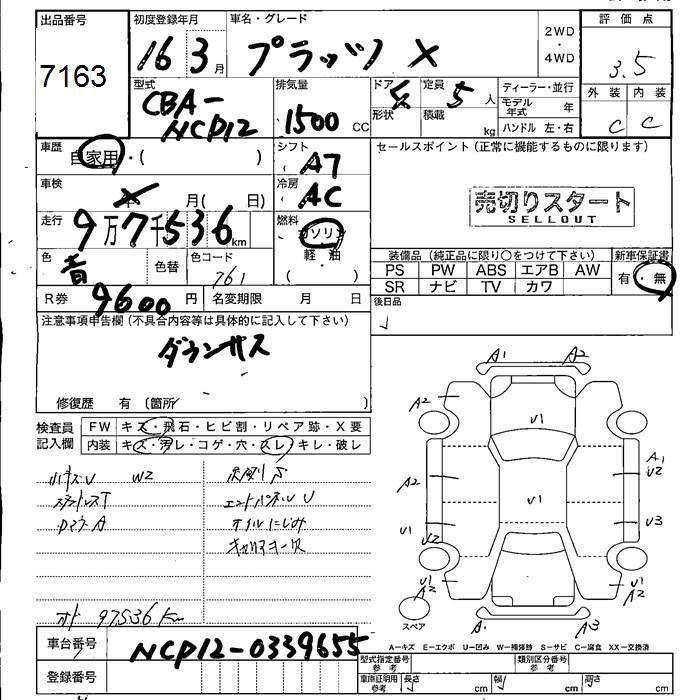 出品番号 初度登録年月 車名・グレード 評価点
7163 16 3月 プラッツ X 2WD ・ 4WD 3.5
型式 排気量 ドア 定員 ディーラー・並行 外装 内装
CBA-NCP12 1500 CC 4 形状 5人 積載 kg モデル年式 年 C C
ハンドル 左・右
車歴 自家用・( ) シフト A7 セールスポイント (正常に機能するものに限ります)
車検 年 月( 日) 冷房 AC 売切りスタート
SELLOUT
走行 9万7千536km 燃料 ガソリン
軽油 装備品 (純正品に限り○をつけて下さい) 新車保証書
色 青 色替 色コード 761 ( ) PS PW ABS エアB AW 有・無
SR ナビ TV カワ
R券 9600円 名変期限 月 日 後日品
注意事項申告欄 (不具合内容等は具体的に記入して下さい)
ダウンサス
修復歴 有 〔箇所 〕
検査員 FW キズ・飛石・ヒビ割・リペア跡・X要
記入欄 内装 キズ・汚レ・コゲ・穴・スレ・キレ・破レ
W2
エンドパネルU
オイルにじみ
97536km
A1 A2
A2 U1
A1
A2 U2
U1
U1 U3
U2
U1 U1
A2 A2
スペア A1 A3
A―キズ E―エクボ U―凹み W―補修跡 S―サビ C―腐食 XX―交換済
車台番号 NCP12-0339655
型式指定番号 参考 類別区分番号 参考
登録番号 車庫証明用 参考 長さ cm 幅 cm 高さ cm